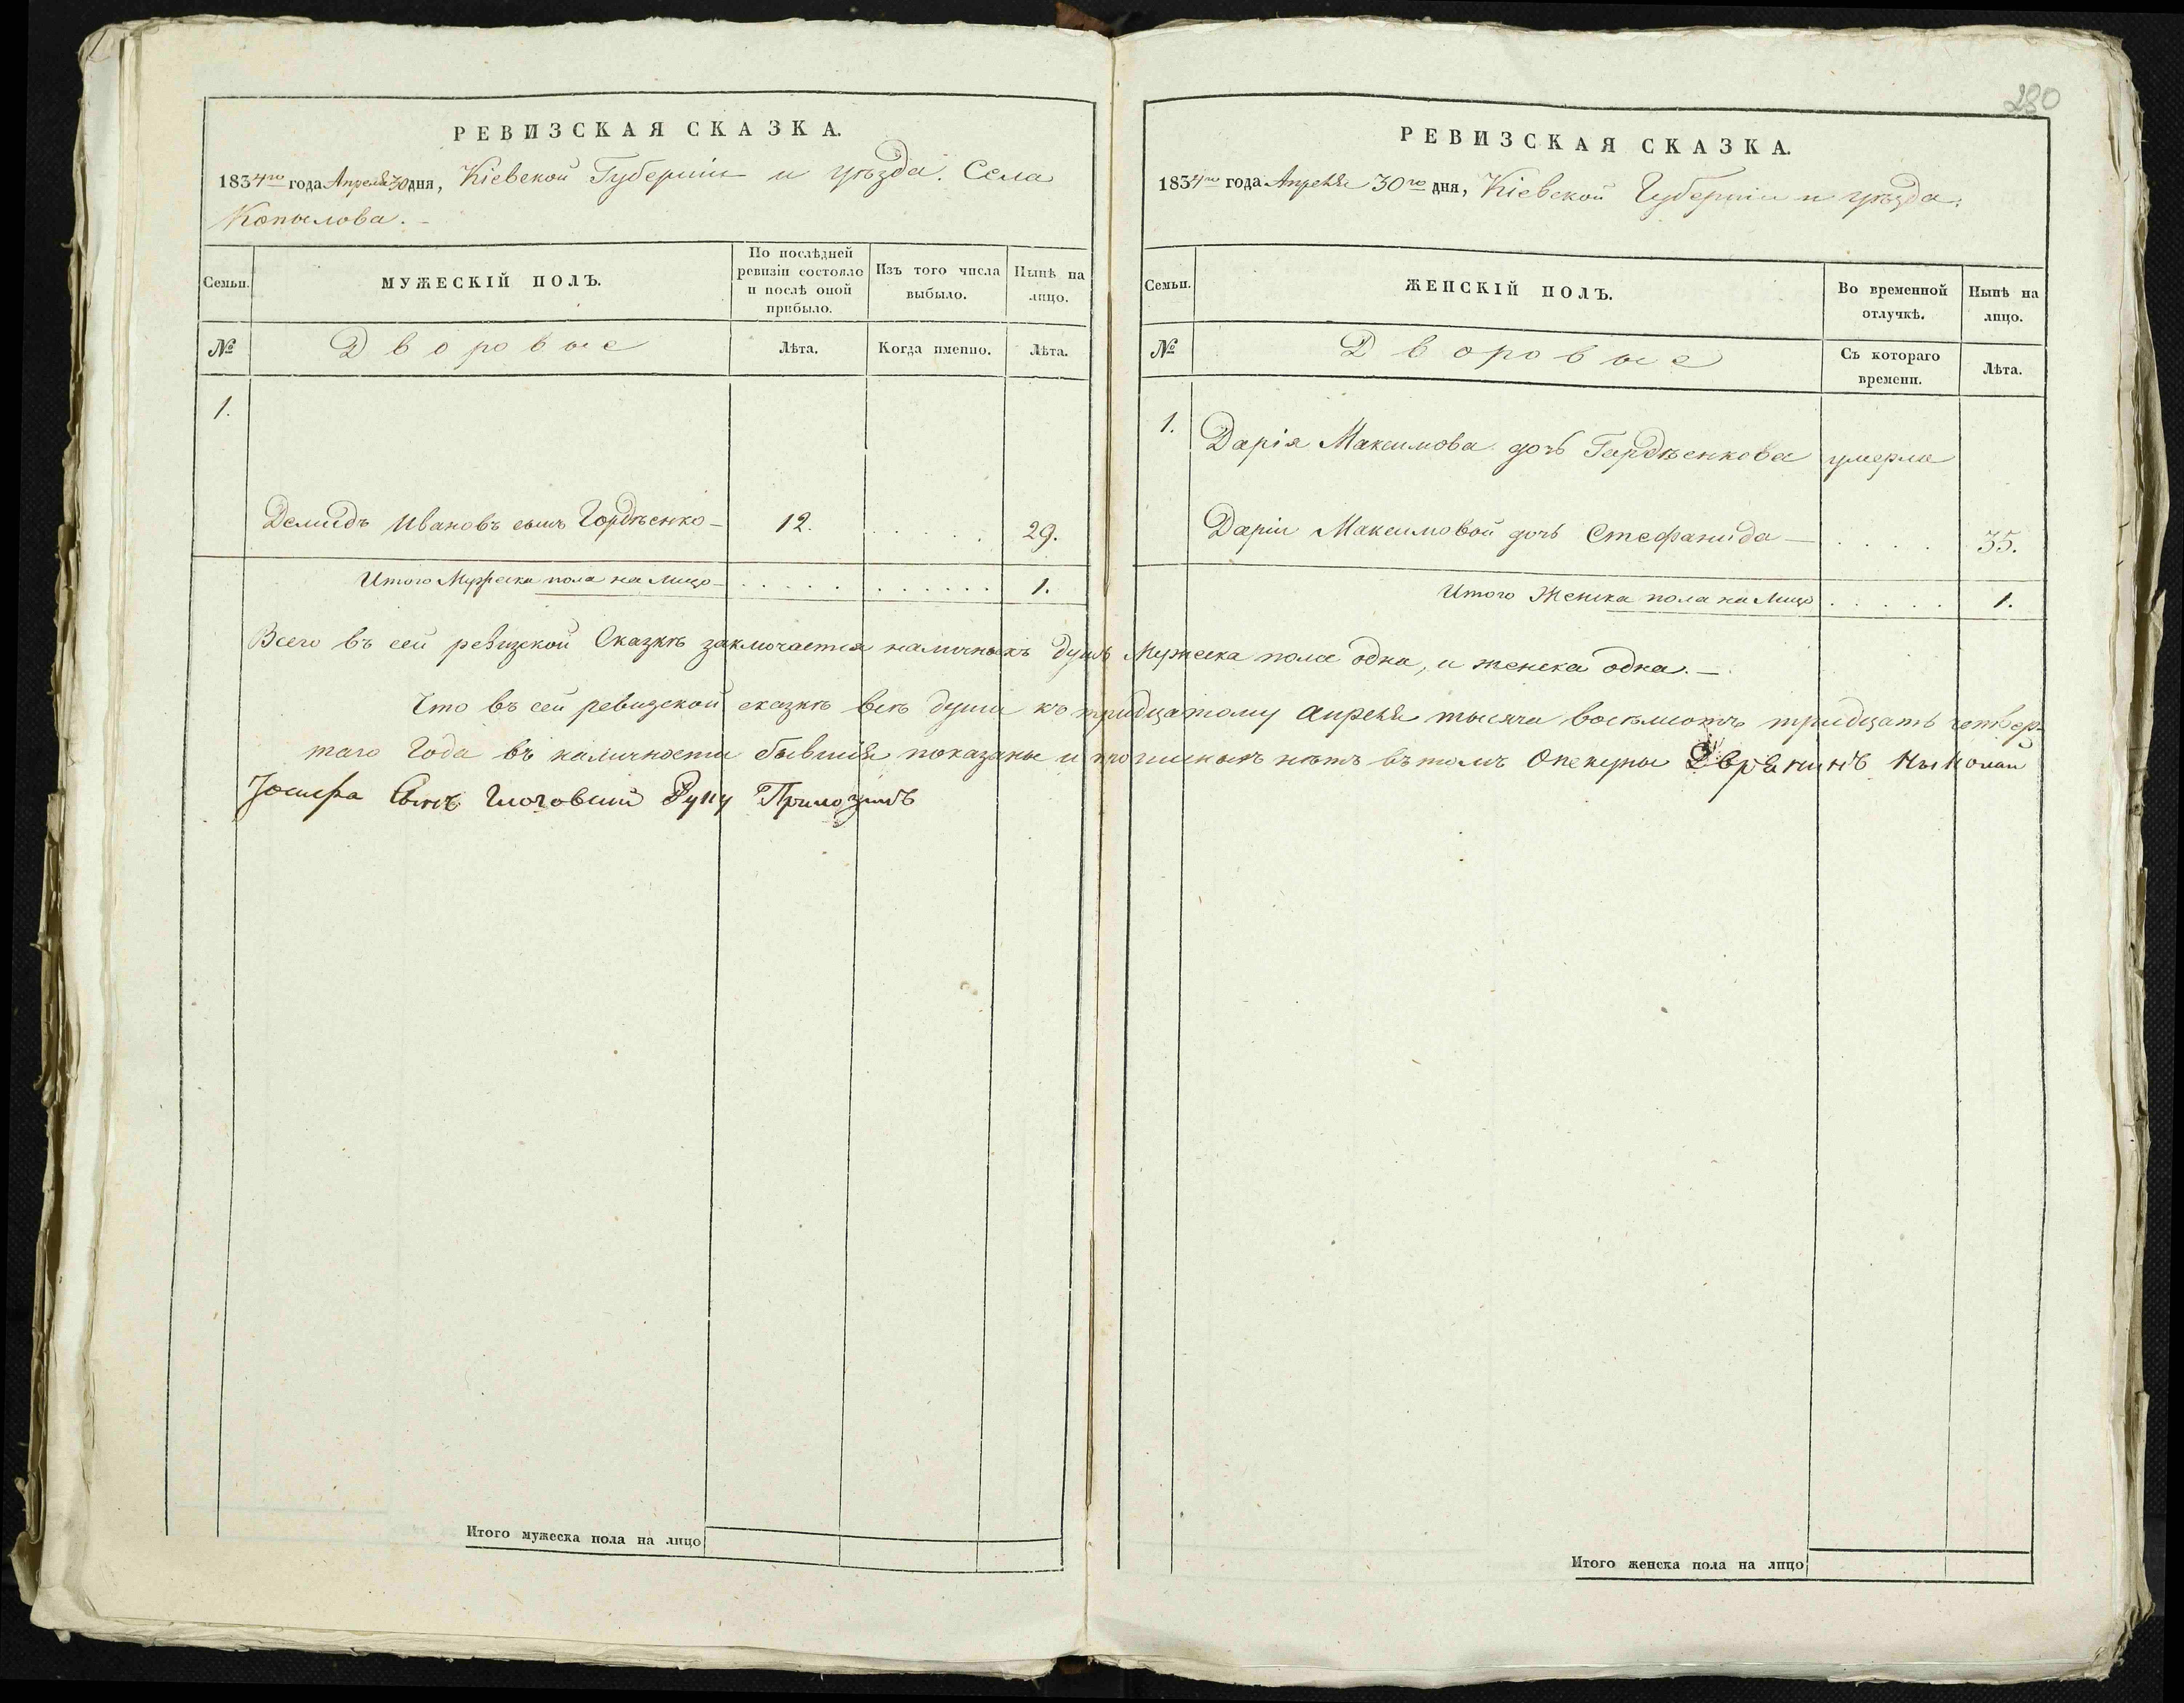 280
РЕВИЗСКАЯ СКАЗКА.
1834го года Апреля 30 дня, Кіевской Губерніи и уѣзда. Села
Копылова. –
Семьи.
МУЖЕСКІЙ ПОЛЪ.
По послѣдней ревизіи состояло и послѣ оной прибыло.
Изъ того числа выбыло.
Нынѣ на лицо.
№
Дворовые
Лѣта.
Когда именно.
Лѣта.
1.
Демидъ Ивановъ сынъ Гордѣенко – 12. . . . . . 29.
Итого Мужеска пола на лицо – . . . . . . . . . . 1.
РЕВИЗСКАЯ СКАЗКА.
1834го года Апреля 30го дня, Кіевской Губерніи и уѣзда.
Семьи.
ЖЕНСКІЙ ПОЛЪ.
Во временной отлучкѣ.
Нынѣ на лицо.
№
Дворовые
Съ котораго времени.
Лѣта.
1. Дарія Максимова дочь Гордѣенкова умерла
Даріи Максимовой дочь Стефанида – . . . . 35.
Итого Женска пола на лицо . . . . . 1.
Всего въ сей ревизской Сказкѣ заключается наличныхъ душъ Мужеска пола одна, и женска одна. –
Что въ сей ревизской сказкѣ всѣ души къ тридцатому апреля тысяча восемьсотъ тридцать четвер-
таго Года въ наличности бывшія показаны и прописныхъ нѣтъ въ томъ Опекуны Ныколай
Іосифа Сынъ Руку Приложилъ
Итого мужеска пола на лицо
Итого женска пола на лицо